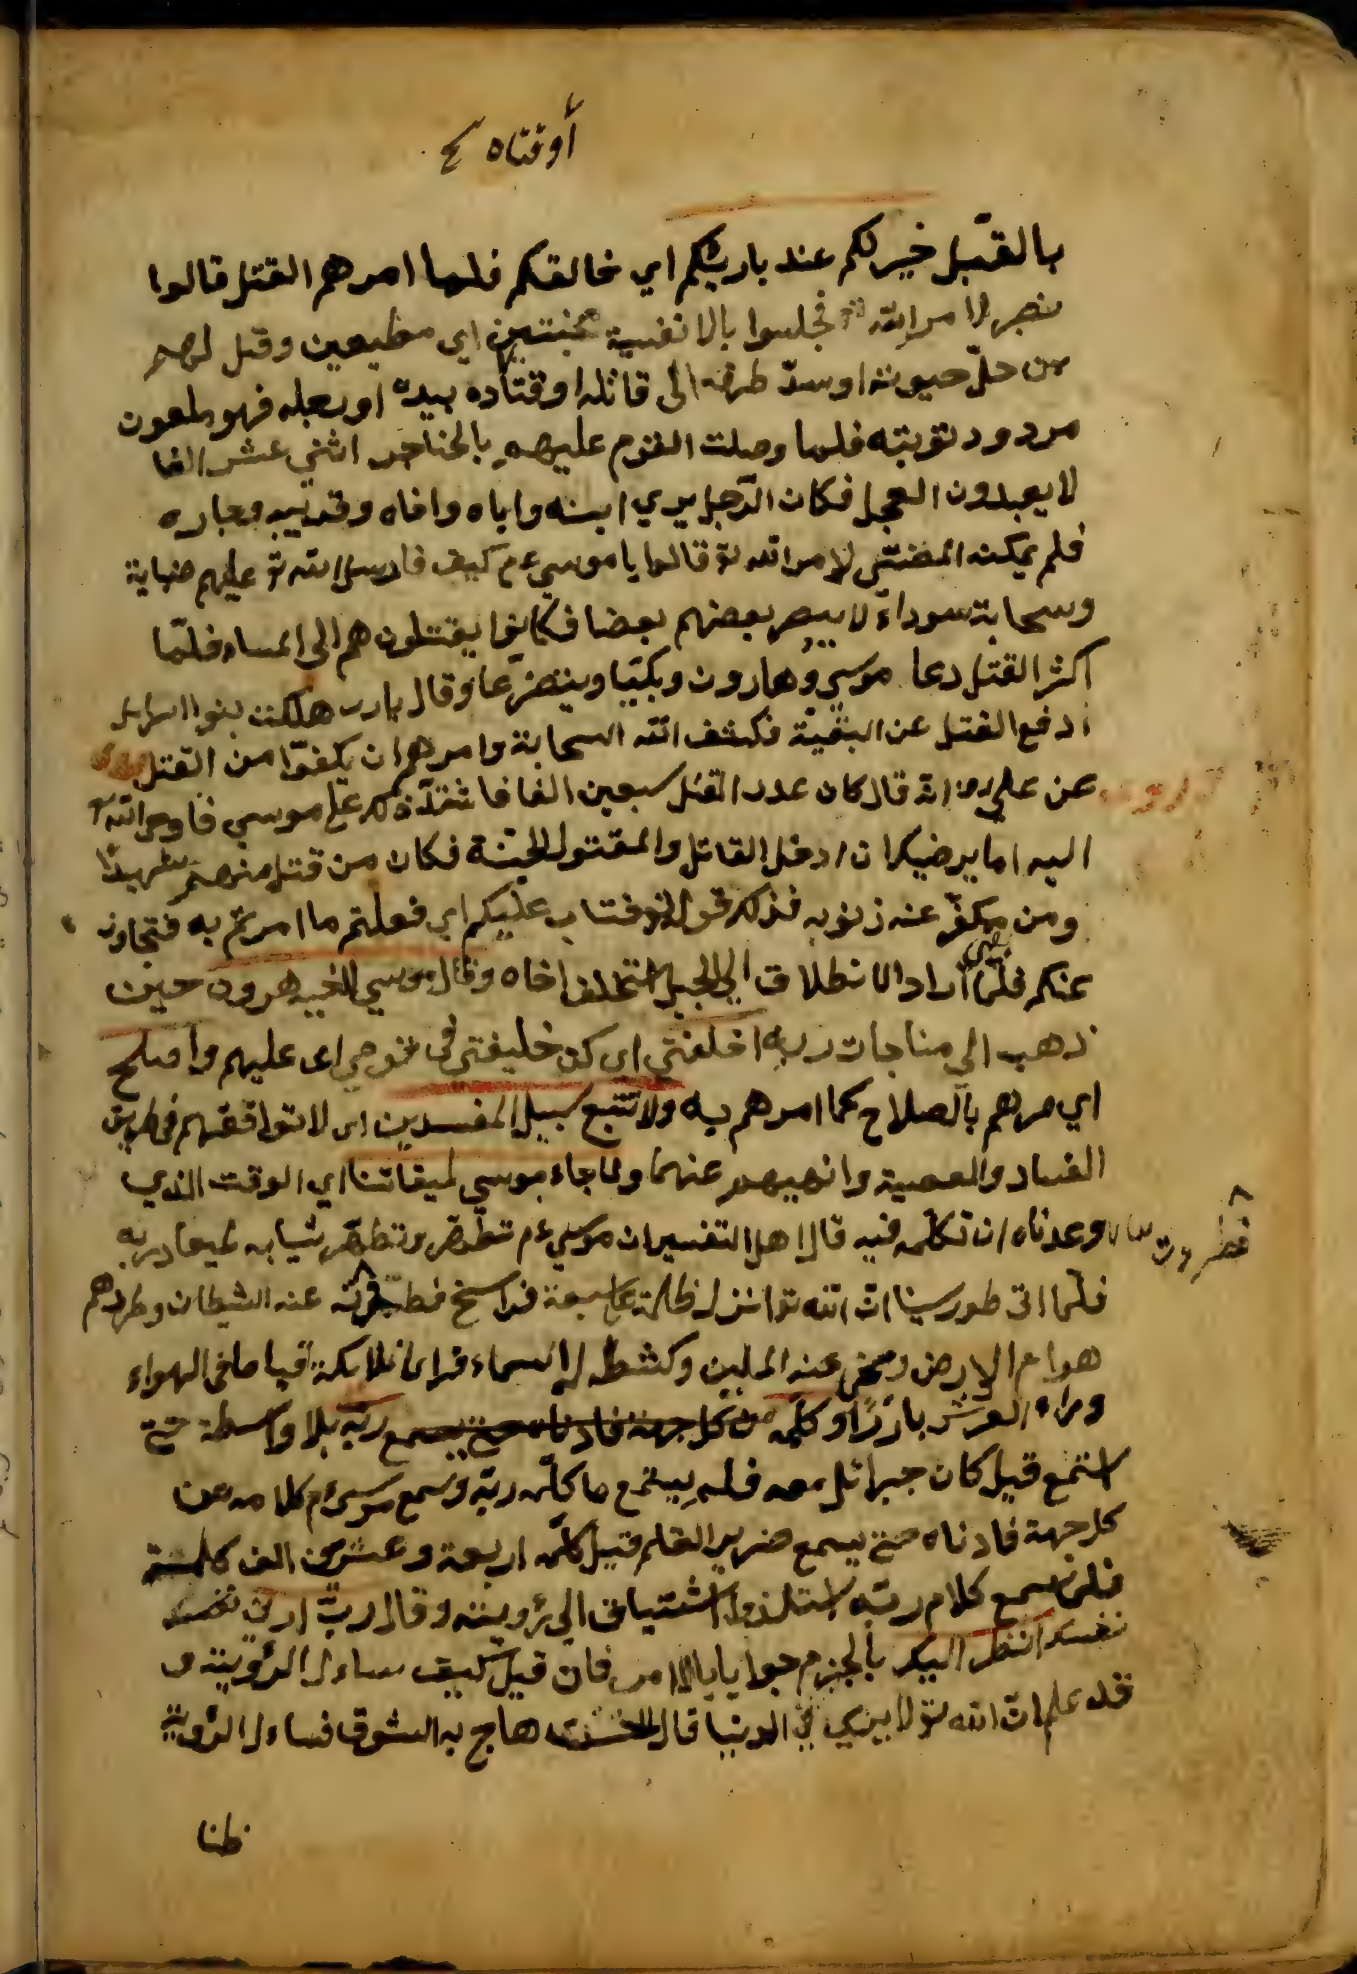 أوقتاه صح
بالقتل خير لكم عند بارئكم اي خالقكم فلما امرهم القتل قالوا
نصبر لامر الله تع فجلسوا بالافنية محتبين اي مطيعين وقيل لهم
من حل حبوته او مد طرفه الى قاتله او قتاده بيده او رجله فهو ملعون
مردود توبته فلما وصلت القوم عليهم بالخناجر اثني عشر الفا
لا يعبدون العجل فكان الرجل يري ابنه واباه واخاه وقريبه وجاره
فلم يمكنه المضي لامر الله تع قالوا يا موسي ءم كيف فارسل الله تع عليهم ضبابة
وسحابة سوداء لا يبصر بعضهم بعضا فكانوا يقتلون هم الى المساء فلما
اكثر القتل دعا موسي وهارون وبكيا ويتضرعا وقال يا رب هلكت بنوا اسرائل
ادفع القتل عن البقية فكشف الله السحابة وامرهم ان يكفوا من القتل
عن علي رض انه قال كان عدد القتل سبعين الفا فاشتد ذلك على موسي فاوحى الله تع
اليه اما يرضيك ان ادخل القاتل والمقتول الجنة فكان من قتل منهم شهيدا
ومن مكفر عنه ذنوبه فذلك قوله فتاب عليكم اي فعلتم ما امرتم به فتجاوز
عنكم فلما اراد الانطلاق الى الجبل استخلف اخاه وقال موسي لاخيه هرون حين
ذهب الى مناجات ربه اخلفني اي كن خليفتي في قومي اى عليهم واصلح
اي مرهم بالصلاح كما امرهم به ولا تتبع سبيل المفسدين اى لا توافقهم في طريق
الفساد والمعصية وانهيهم عنهما ولما جاء موسي لميقاتنا اي الوقت الذي
وعدناه ان نكلمه فيه قال اهل التفسير ان موسي ءم تطهر وتطهر ثيابه لميعاد ربه
فلما اتى طور سينا ان الله تع انزل ظلمة على سبعة فراسخ فطرد عنه الشيطان وطردهم
هوام الارض ونحى عنه الملكين وكشط له السماء فراى الملائكة قياما في الهواء
وراء العرش بارزا وكلمه ربه بلا واسطة حتى
استمع قيل كان جبرائل معه فلم يستمع ما كلمه ربه وسمع موسى ءم كلامه من
كل جهة فادناه حتى يسمع صرير القلم قيل كلمه اربعة وعشرين الف كلمة
فلما سمع كلام ربه استلذ واشتياق الى رؤيته وقال رب ارني
نفسك انظر اليك بالجزم جوابا بالامر فان قيل كيف ساءل الرؤية و
قد علم ان الله تع لا يري في الدنيا قال الحسن هاج به الشوق فساءل الرؤية
ظنا